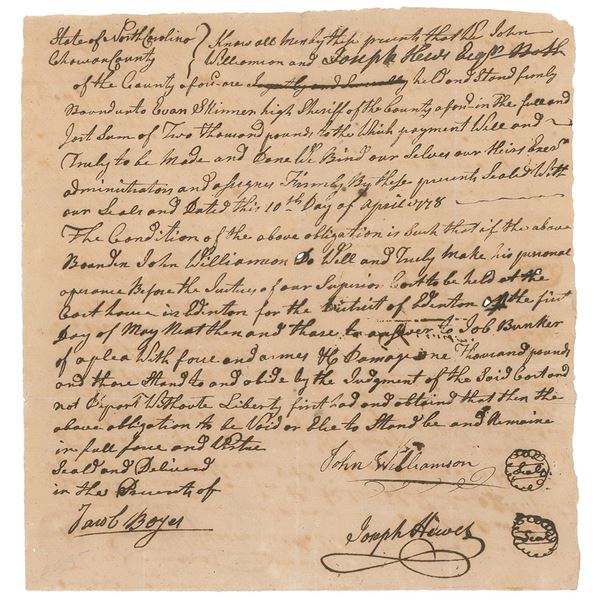 State of North Carolina
Chowan County
Know all Men by these presents that We John
Williamson and Joseph Hews Esqr. Both
of the County aforeare Joyntly and Severally held and Stand firmly
Bound unto Evan Skinner high Sheriff of the County aford in the full and
Jost Sum of Two thousand pounds to the Which payment Will and
Truly to be Made and Done We Bind our Selves our Heirs Exers
administrators and asignes Firmly By these presents Sealed With
our Seals and Dated this 10th Day of April 1778
The Condition of the above obligation is Such that if the above
Bounden John Williamson Do Well and Truly Make his personal
aperance Before the Justices of our Superior Cort to be held at the
Cort house in Edenton for the District of Edenton the first
Day of May Next then and thare to answer to Job Bunker
of a plea With force and armes &c Damage one Thousand pounds
and thare Stand to and abide by the Judgment of the Said Cort and
not Depart Withoute Liberty first had and obtaind that then the
above obligation to be Void or Else to Stand be and Remaine
in full force and Virtue
Seald and Deliverd
in the Presents of
Jacob Boyes
John Williamson
Seal
Joseph Hewes
Seal